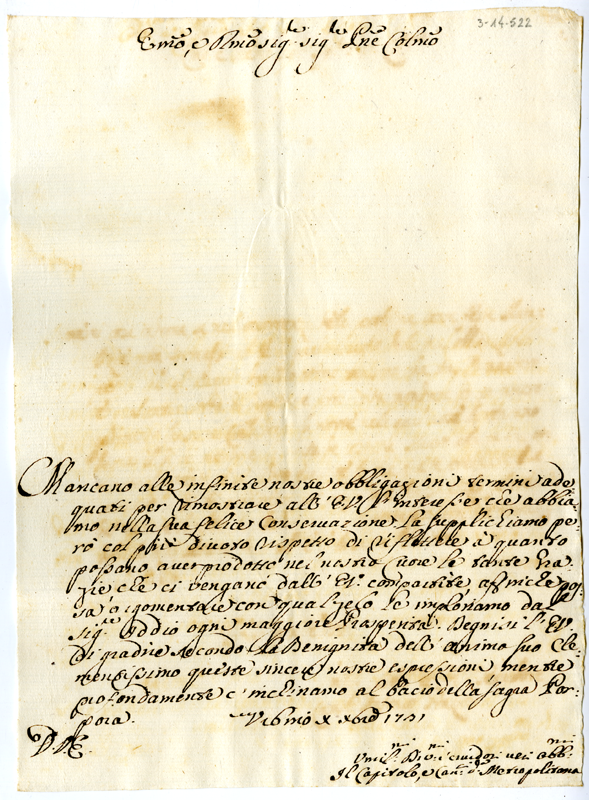 3-14-522
Emo, e Rmo Sig.re Sig.re Pne Colmo
Mancano alle infinite nostre obbligazioni termini ade
quati per dimostrare all' E.V. l'interesse che abbia-
mo nella sua felice Conservazione. La supplichiamo pe-
rò col più divoto rispetto di riflettere a quanto
possano aver prodotto nel nostro Cuore le tante Gra-
zie, che ci vengano dall' E.V. compartite affinche pos-
sa argomentare con qual zelo le imploriamo dal
Sig.re Iddio ogni maggiore Prosperità. Degnisi l' E.V.
di gradire secondo la Benignità dell' Animo suo Cle-
mentissimo queste sincere nostre espressioni mentre
profondamente c' inchiniamo al bacio della Sagra Por-
pora.
Urbino X Xbre 1741
D.V.E.
Umil.mi Div.mi
Il Capitolo, e Can.ci d. Metropolitana